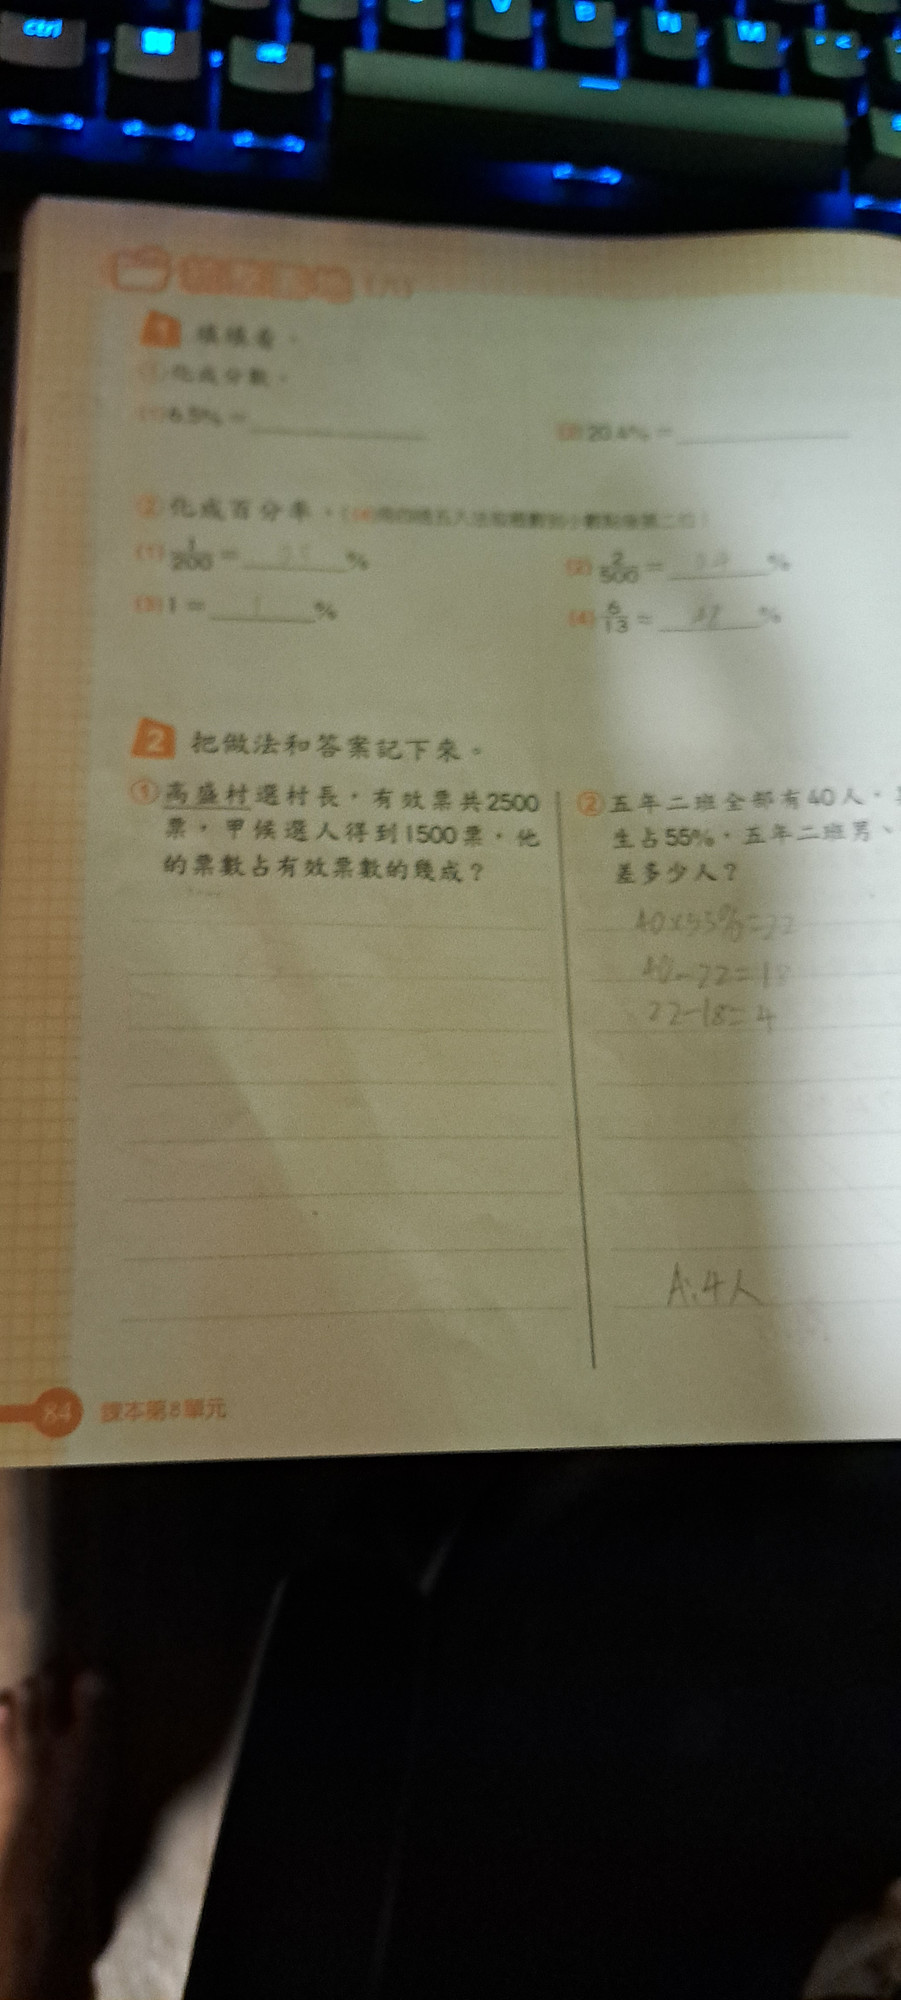 ctrl
alt
V B N M
1 填填看。
① 化成分數。
(1) 6.5% =
(2) 20.4% =
② 化成百分率。((4)用四捨五入法取概數到小數點後第二位)
(1) 1/200 = %
(2) 2/500 = %
(3) 1 = 1 %
(4) 6/13 = %
2 把做法和答案記下來。
① 高盛村選村長,有效票共2500
票,甲候選人得到1500票,他
的票數占有效票數的幾成?
② 五年二班全部有40人,
生占55%,五年二班男、
差多少人?
40×55%=22
40-22=18
22-18=4
A:4人
84 課本第8單元